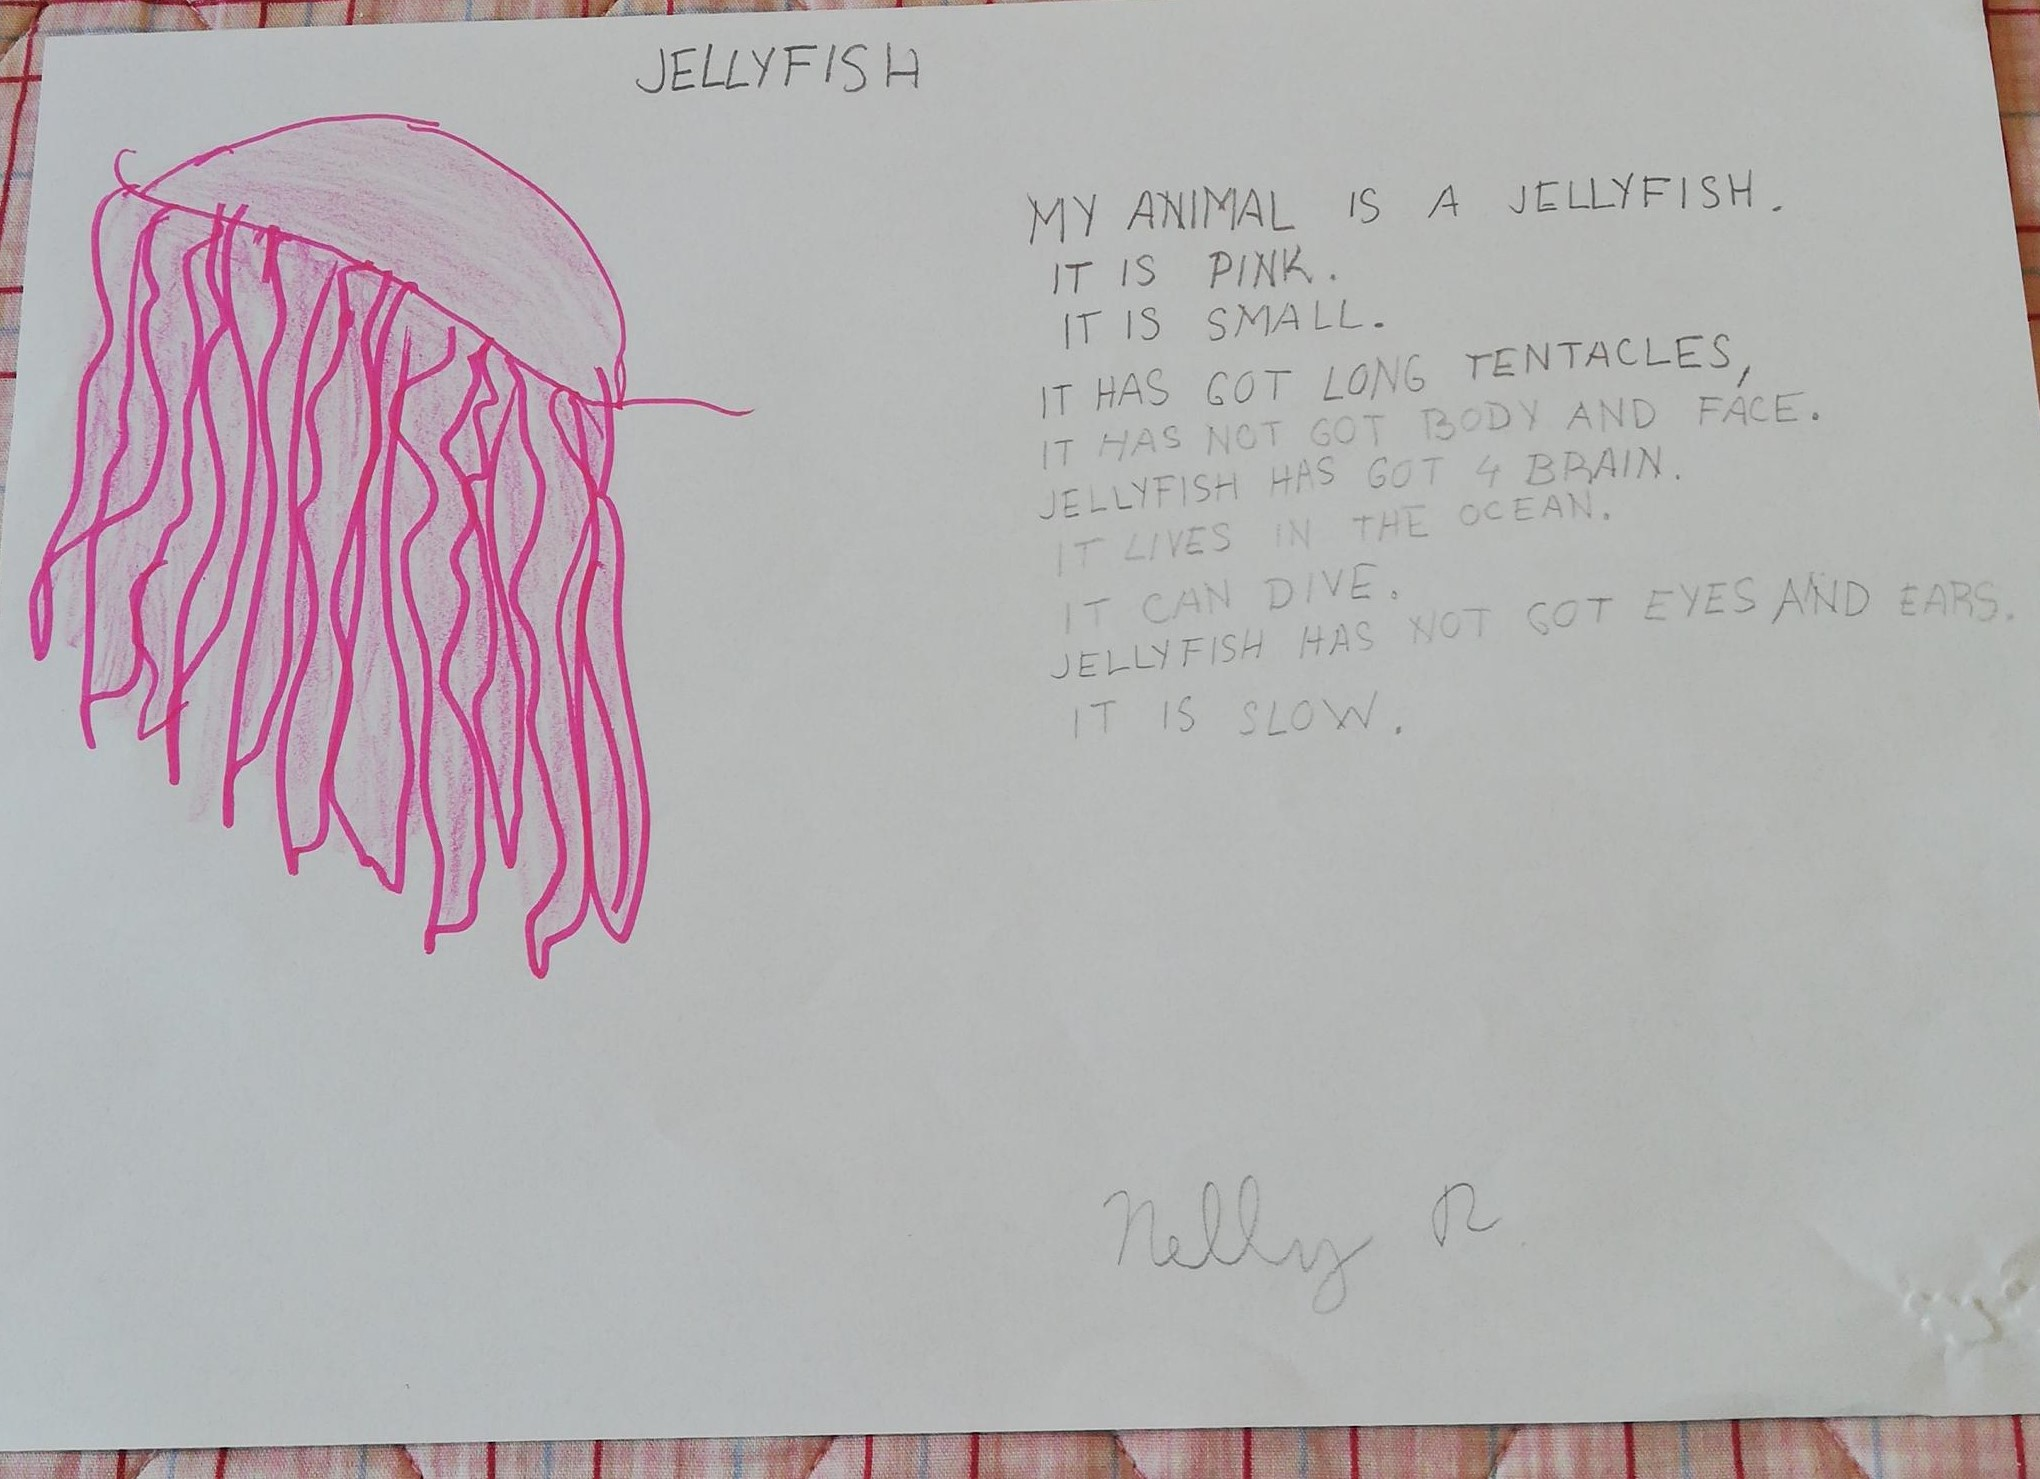 JELLYFISH
MY ANIMAL IS A JELLYFISH.
IT IS PINK.
IT IS SMALL.
IT HAS GOT LONG TENTACLES,
IT HAS NOT GOT BODY AND FACE.
JELLYFISH HAS GOT 4 BRAIN.
IT LIVES IN THE OCEAN.
IT CAN DIVE.
JELLYFISH HAS NOT GOT EYES AND EARS.
IT IS SLOW.
Nelly R